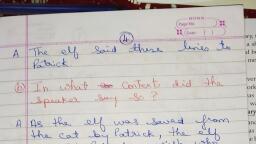 Page No.
Date
4
A The elf said these lines to
Patrick
(b) In what context did the
speaker say so ?
A As the elf was saved from
the cat by Patrick, the elf